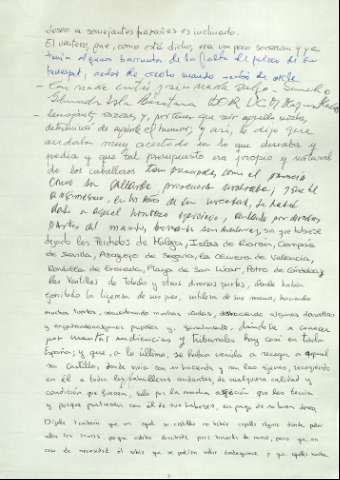 deseo a semejantes personas es inclinado.
El ventero, que, como está dicho, era un poco socarrón y ya
tenía algunos barruntos de la falta de juicio de su
huésped, acabó de creerlo cuando acabó de oírle
semejantes razones, y, por tener que reír aquella noche,
determinó de seguirle el humor; y así, le dijo que
andaba muy acertado en lo que deseaba y
pedía y que tal presupuesto era propio y natural
de los caballeros tan principales como él parecía
y que él
ansimesmo, en los años de su mocedad, se había
dado a aquel honroso ejercicio, andando por diversas
partes del mundo, buscando sus aventuras, sin que hubiese
dejado los Percheles de Málaga, Islas de Riarán, Compás
de Sevilla, Azoguejo de Segovia, la Olivera de Valencia,
Rondilla de Granada, Playa de San Lúcar, Potro de Córdoba y
las Ventillas de Toledo y otras diversas partes, donde había
ejercitado la ligereza de sus pies, sutileza de sus manos, haciendo
muchos tuertos, recuestando muchas viudas, deshaciendo algunas doncellas
y engañando algunos pupilos y, finalmente, dándose a conocer
por cuantas audiencias y tribunales hay casi en toda
España; y que, a lo último, se había venido a recoger a aquel
su castillo, donde vivía con su hacienda y con las ajenas, recogiendo
en él a todos los caballeros andantes, de cualquiera calidad y
condición que fuesen, sólo por la mucha afición que les tenía
y porque partiesen con él de sus haberes, en pago de su buen deseo.
Díjole también que en aquel su castillo no había capilla alguna donde poder
velar las armas, porque estaba derribada para hacerla de nuevo, pero que en
caso de necesidad él sabía que se podían velar dondequiera, y que aquella noche